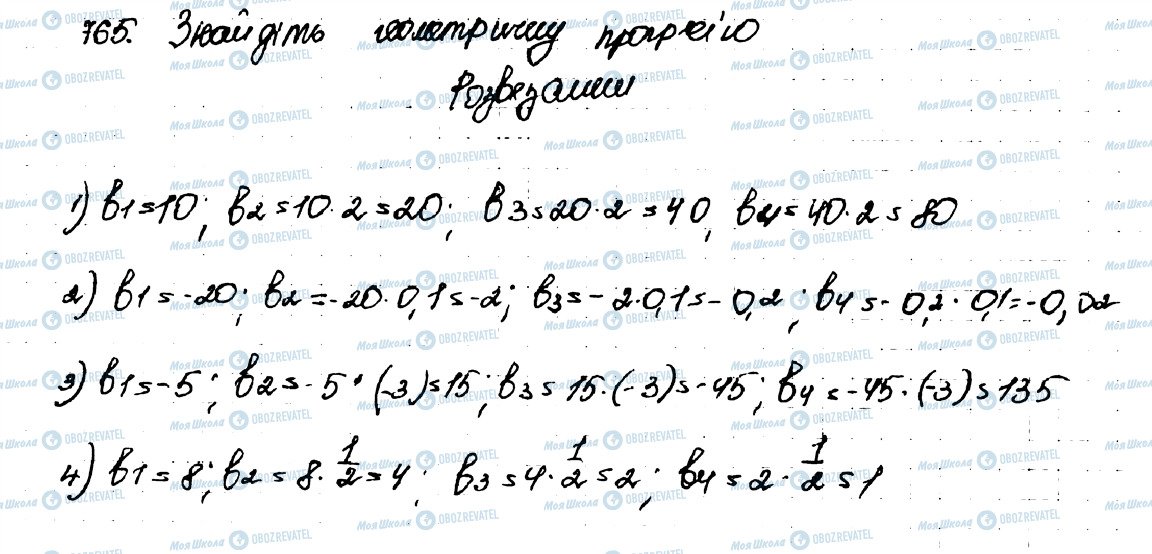 765. Знайдіть геометричну прогресію
Розвезання
1) b1=10; b2=10·2=20; b3=20·2=40, b4=40·2=80
2) b1=-20; b2=-20·0,1=-2; b3=-2·0,1=-0,2; b4=-0,2·0,1=-0,02
3) b1=-5; b2=-5·(-3)=15; b3=15·(-3)=-45; b4=-45·(-3)=135
4) b1=8; b2=8·1/2=4; b3=4·1/2=2; b4=2·1/2=1
Моя Школа OBOZREVATEL